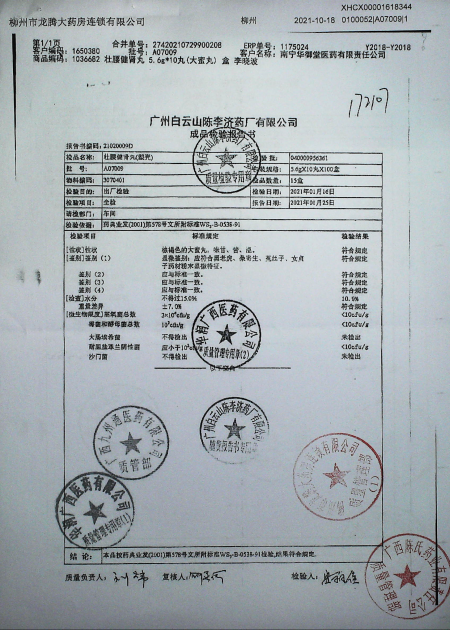 XHCX00001618344
柳州市龙腾大药房连锁有限公司 柳州 2021-10-18 0100052|A07009|1
第1/1页 合并单号: 27420210729900208 ERP单号: 1175024 Y2018-Y2018
客户编码: 1650380 批号: A07009 客户名称: 南宁华御堂医药有限公司
商品编码: 1036682 壮腰健肾丸 5.6g*10丸(大蜜丸) 盒 李晓波
172107
广州白云山陈李济药厂有限公司
成品检验报告书
报告书编码: 21020009D
检品名称: 壮腰健肾丸 040000956361
批 号: A07009 包装规格: 5.6gX10丸X100盒
物料编码: 3070401 检品数量: 15盒
检验目的: 出厂检验 检验日期: 2021年01月16日
检验项目: 全检 报告日期: 2021年01月25日
请检部门: 车间
检验依据: 药典业发(2001)第578号文所附标准WS₃-B-0538-91
检验项目 标准规定 检验结果
[性状]性状 棕褐色的大蜜丸，味甘、 符合规定
[鉴别]鉴别（1） 显微鉴别：应符合 桑寄生、菟丝子、女贞 符合规定
子药材粉末显微特征。
鉴别（2） 应与标准一致。 符合规定
鉴别（3） 应与标准一致。 符合规定
鉴别（4） 应与标准一致。 符合规定
[检查]水分 不得过15.0% 10.9%
重量差异 ±7.0% 符合规定
[微生物限度]需氧菌总数 <10cfu/g
霉菌和酵母菌总数 <10cfu/g
大肠埃希菌 不得检出 未检出
耐胆盐革兰阴性菌 应小于 <10cfu/g
沙门菌 不得检出 未检出
华润广西医药有限公司
质量管理专用章(2)
广西九州通医药有限公司
质管部
广州白云山陈李济药厂有限公司
华润广西医药有限公司
广西陈氏药业
结 论: 本品按药典业发(2001)第578号文所附标准WS₃-B-0538-91检验,结果符合规定.
质量负责人: 复核人: 检验人: